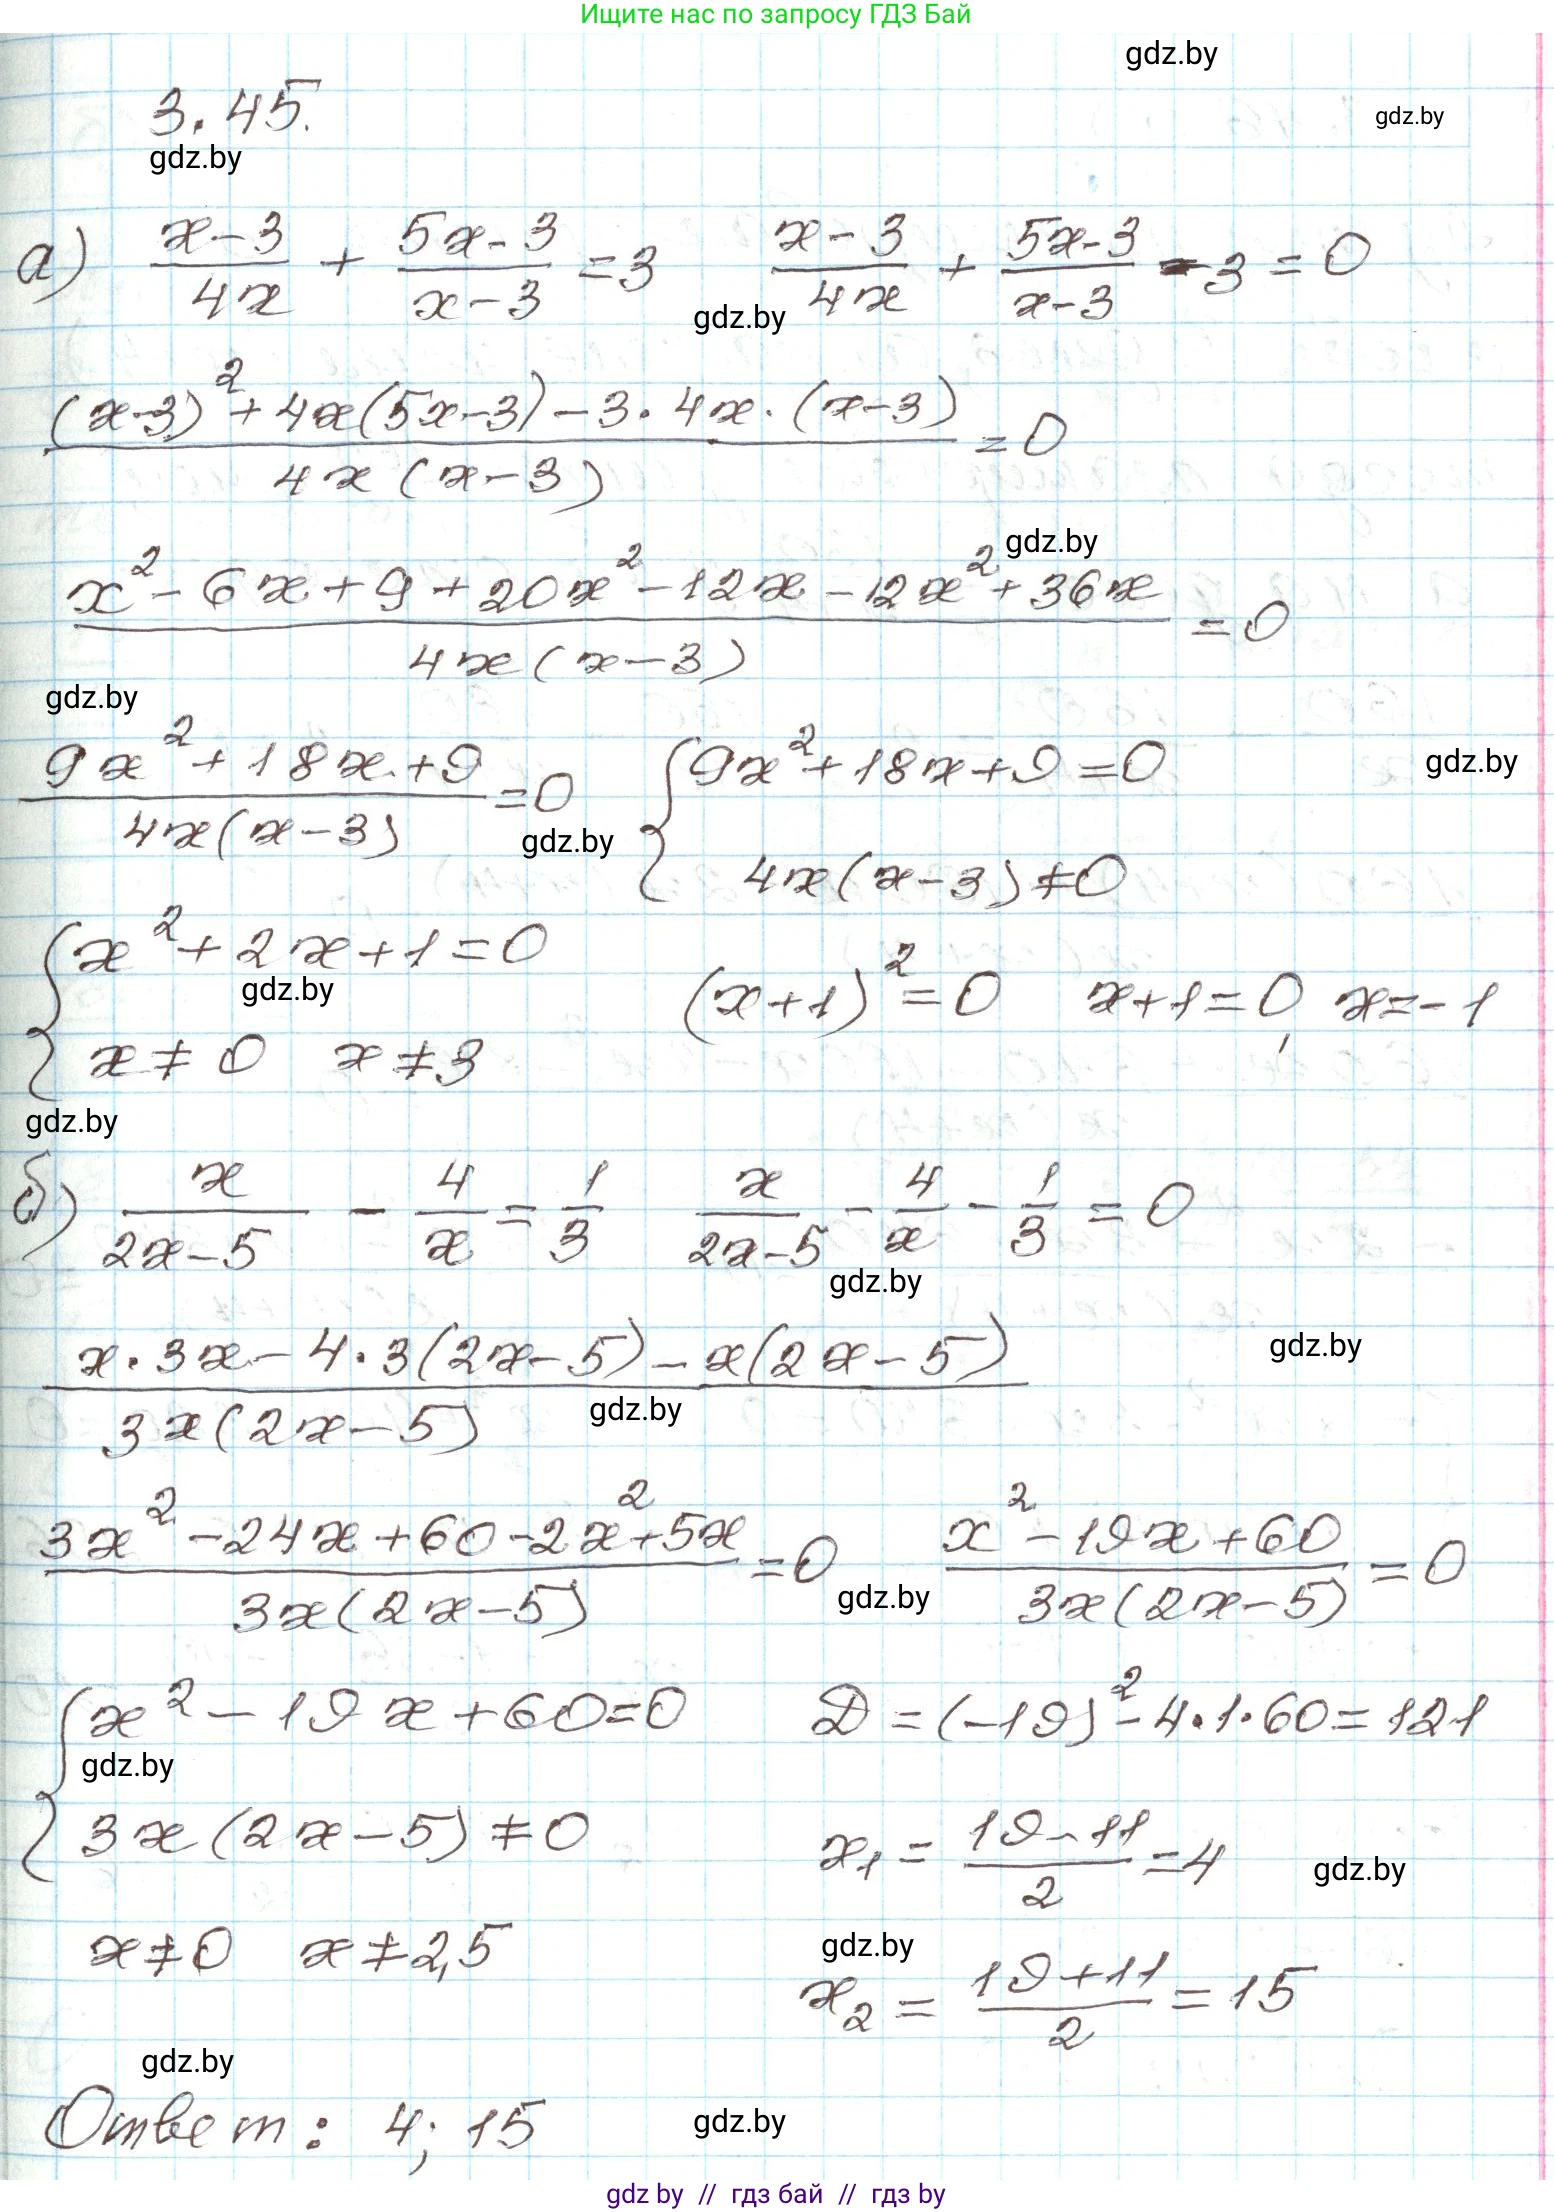 Ищите нас по запросу ГДЗ Бай
gdz.by
3.45.
gdz.by
gdz.by
а) (x-3)/(4x) + (5x-3)/(x-3) = 3   (x-3)/(4x) + (5x-3)/(x-3) - 3 = 0
gdz.by
((x-3)² + 4x(5x-3) - 3·4x·(x-3))/(4x(x-3)) = 0
gdz.by
(x² - 6x + 9 + 20x² - 12x - 12x² + 36x)/(4x(x-3)) = 0
gdz.by
(9x² + 18x + 9)/(4x(x-3)) = 0   { 9x² + 18x + 9 = 0
gdz.by
gdz.by
4x(x-3) ≠ 0
{ x² + 2x + 1 = 0   (x+1)² = 0   x+1=0, x=-1
gdz.by
x ≠ 0   x ≠ 3
gdz.by
б) x/(2x-5) - 4/x = 1/3   x/(2x-5) - 4/x - 1/3 = 0
gdz.by
(x·3x - 4·3(2x-5) - x(2x-5))/(3x(2x-5))
gdz.by
gdz.by
(3x² - 24x + 60 - 2x² + 5x)/(3x(2x-5)) = 0   (x² - 19x + 60)/(3x(2x-5)) = 0
gdz.by
{ x² - 19x + 60 = 0   D = (-19)² - 4·1·60 = 121
gdz.by
3x(2x-5) ≠ 0   x₁ = (19-11)/2 = 4
gdz.by
gdz.by
x ≠ 0   x ≠ 2,5   x₂ = (19+11)/2 = 15
gdz.by
Ответ: 4; 15
gdz.by
gdz by // гдз бай // гдз by